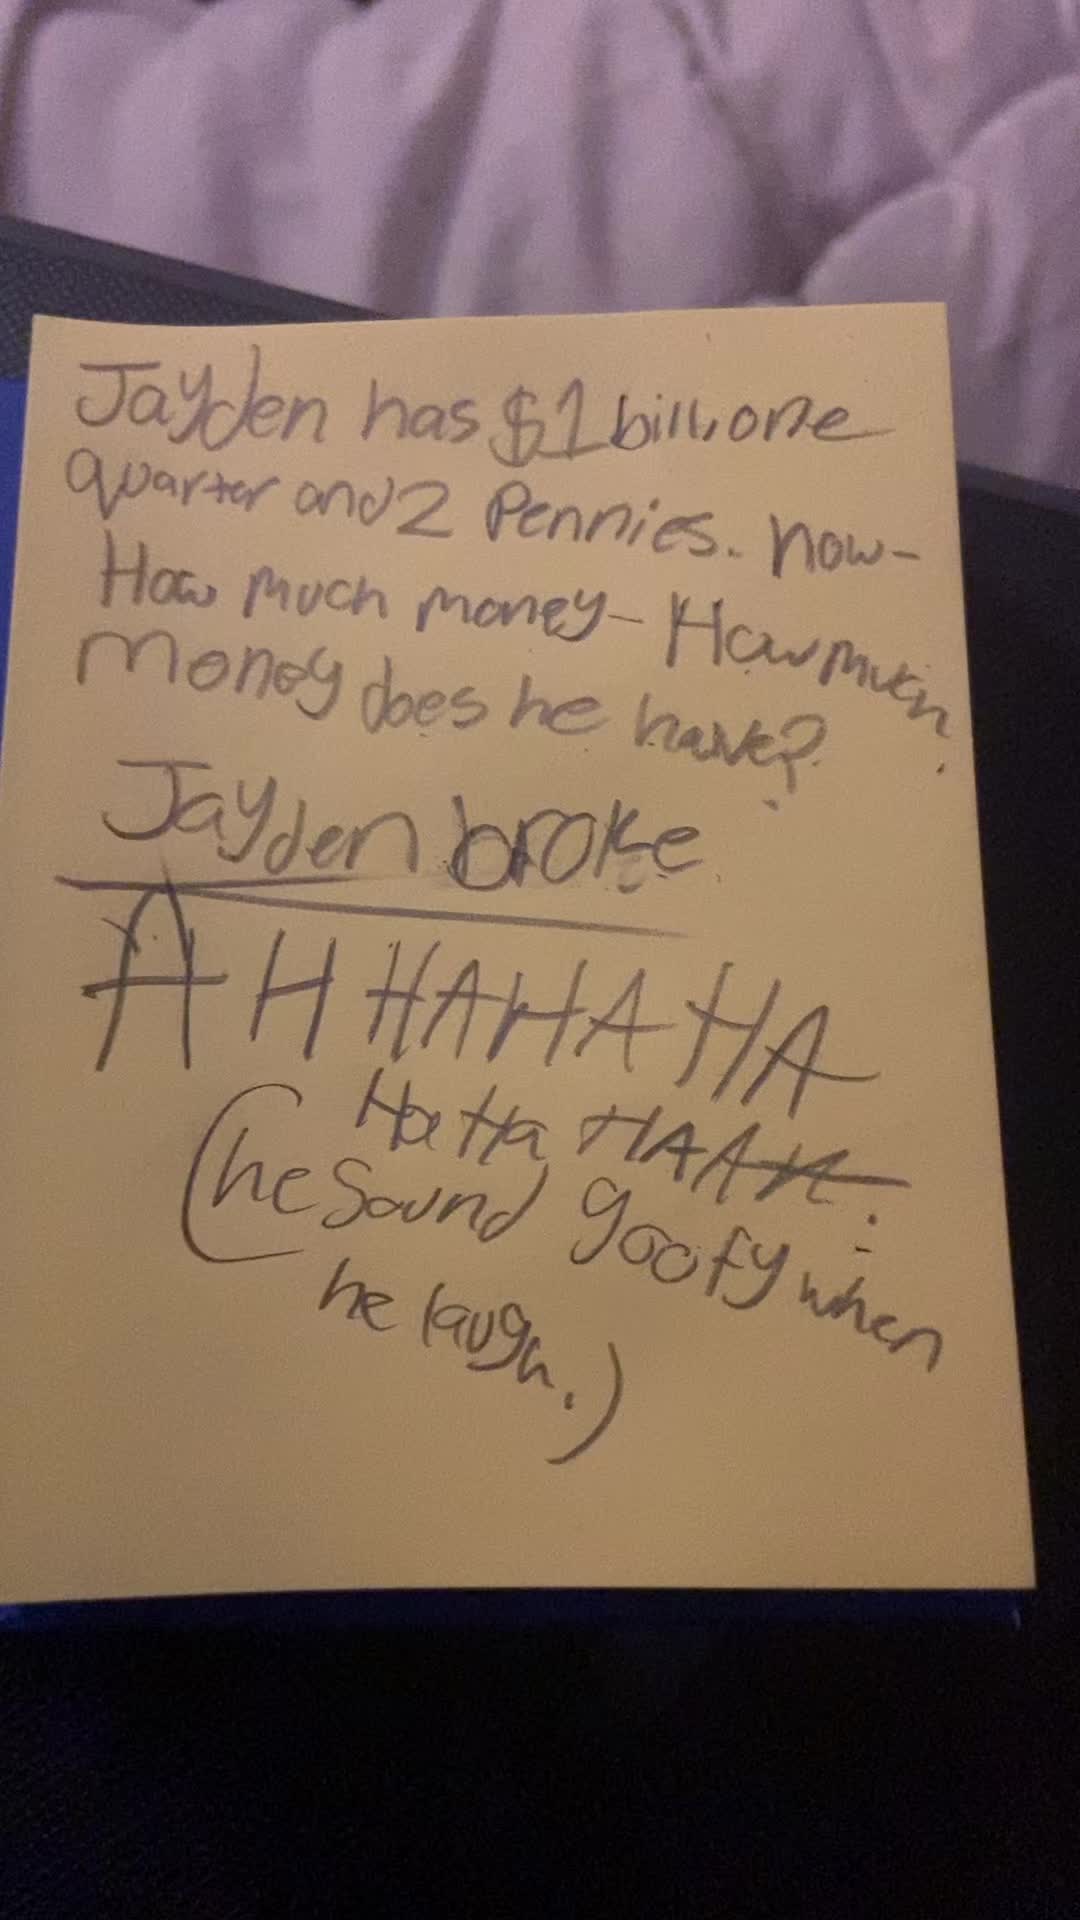 Jayden has $1 bill, one
quarter and 2 Pennies. now-
How much money- How much
money does he have?
Jayden broke
AH HAHAHA
Ha Ha HAAH.
(he sound goofy when
he laugh.)